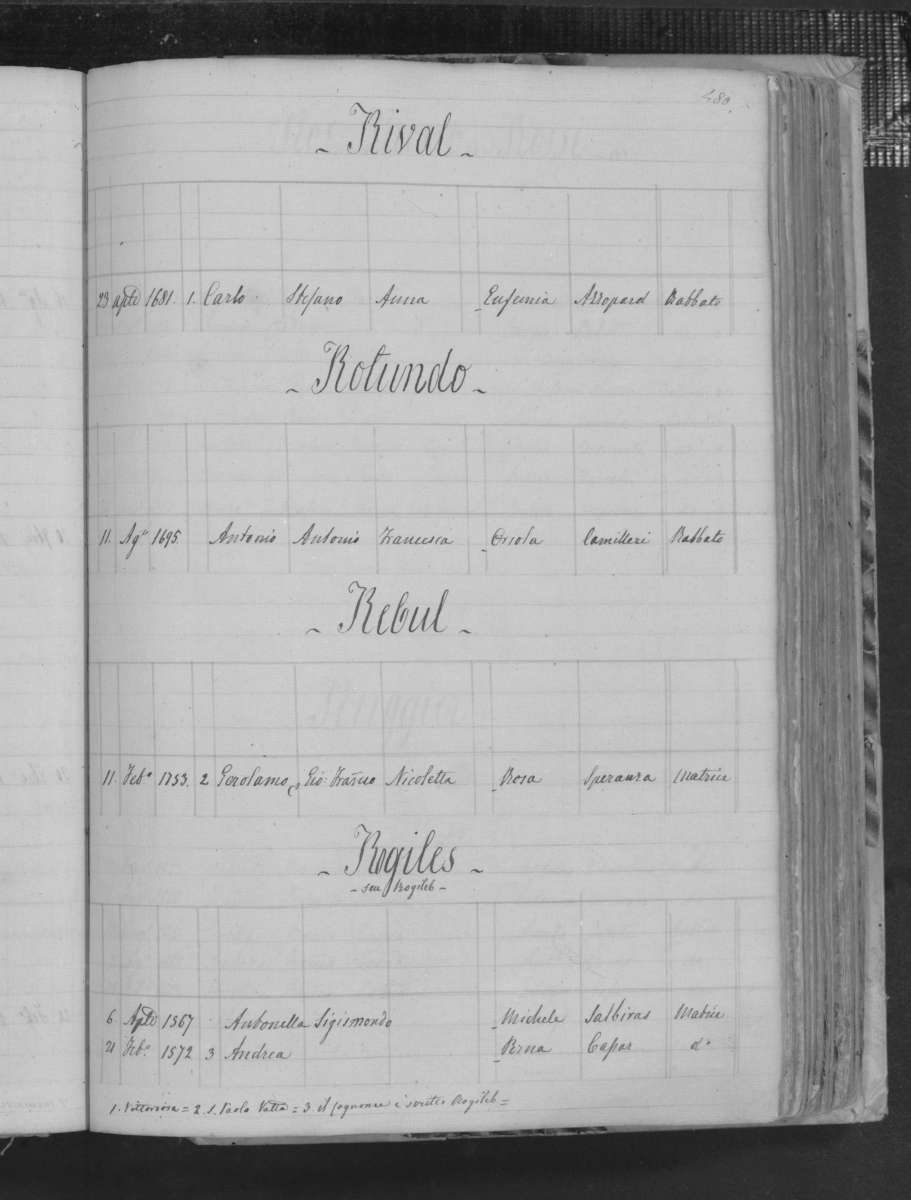 480
- Rival -
23 aple 1681. 1. Carlo Stefano Anna Eufemia Azzopard Rabbato
- Rotundo -
11. Ago 1695. Antonio Antonio Francesca Orsola Camilleri Rabbato
- Rebul -
11. Febo 1753. 2 Gerolamo Gio: Nicoletta Rosa Speranza Matrice
- Rogiles -
- seu Rogileb -
6 Aple 1567 Antonella Sigismondo Michele Matrice
21 Febo 1572 3 Andrea Perna do
1. Vittoriosa = 2. S. Paolo Vatta = 3. il è Rogileb =